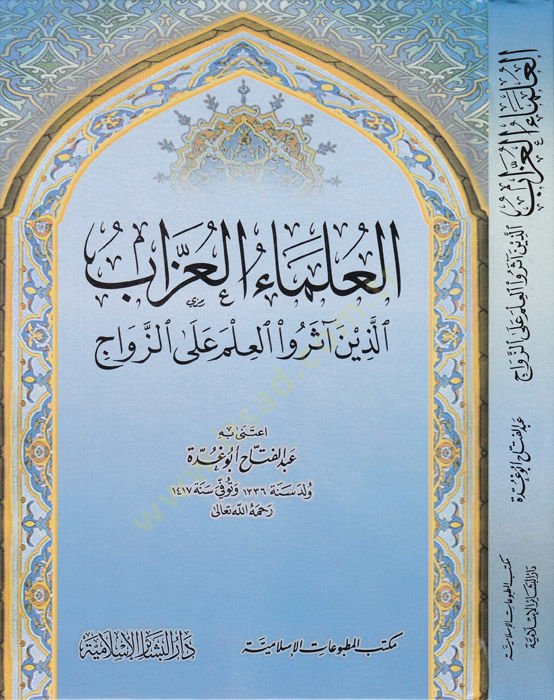 العُلَمَاءُ العُزَّابُ
الَّذِيْنَ آثَرُوا العِلْمَ عَلَى الزَّوَاجِ
اعتنى به
عبد الفتاح أبو غُدَّة
ولد سنة ١٣٣٦ وتوفي سنة ١٤١٧
رحمه الله تعالى
مكتب المطبوعات الإسلاميَّة
دار البشائر الإسلاميّة
العُلَمَاءُ العُزَّابُ
الَّذِيْنَ آثَرُوا العِلْمَ عَلَى الزَّوَاجِ
عبد الفتاح أبو غُدَّة
مكتب المطبوعات الإسلامية
دار البشائر الإسلاميَّة